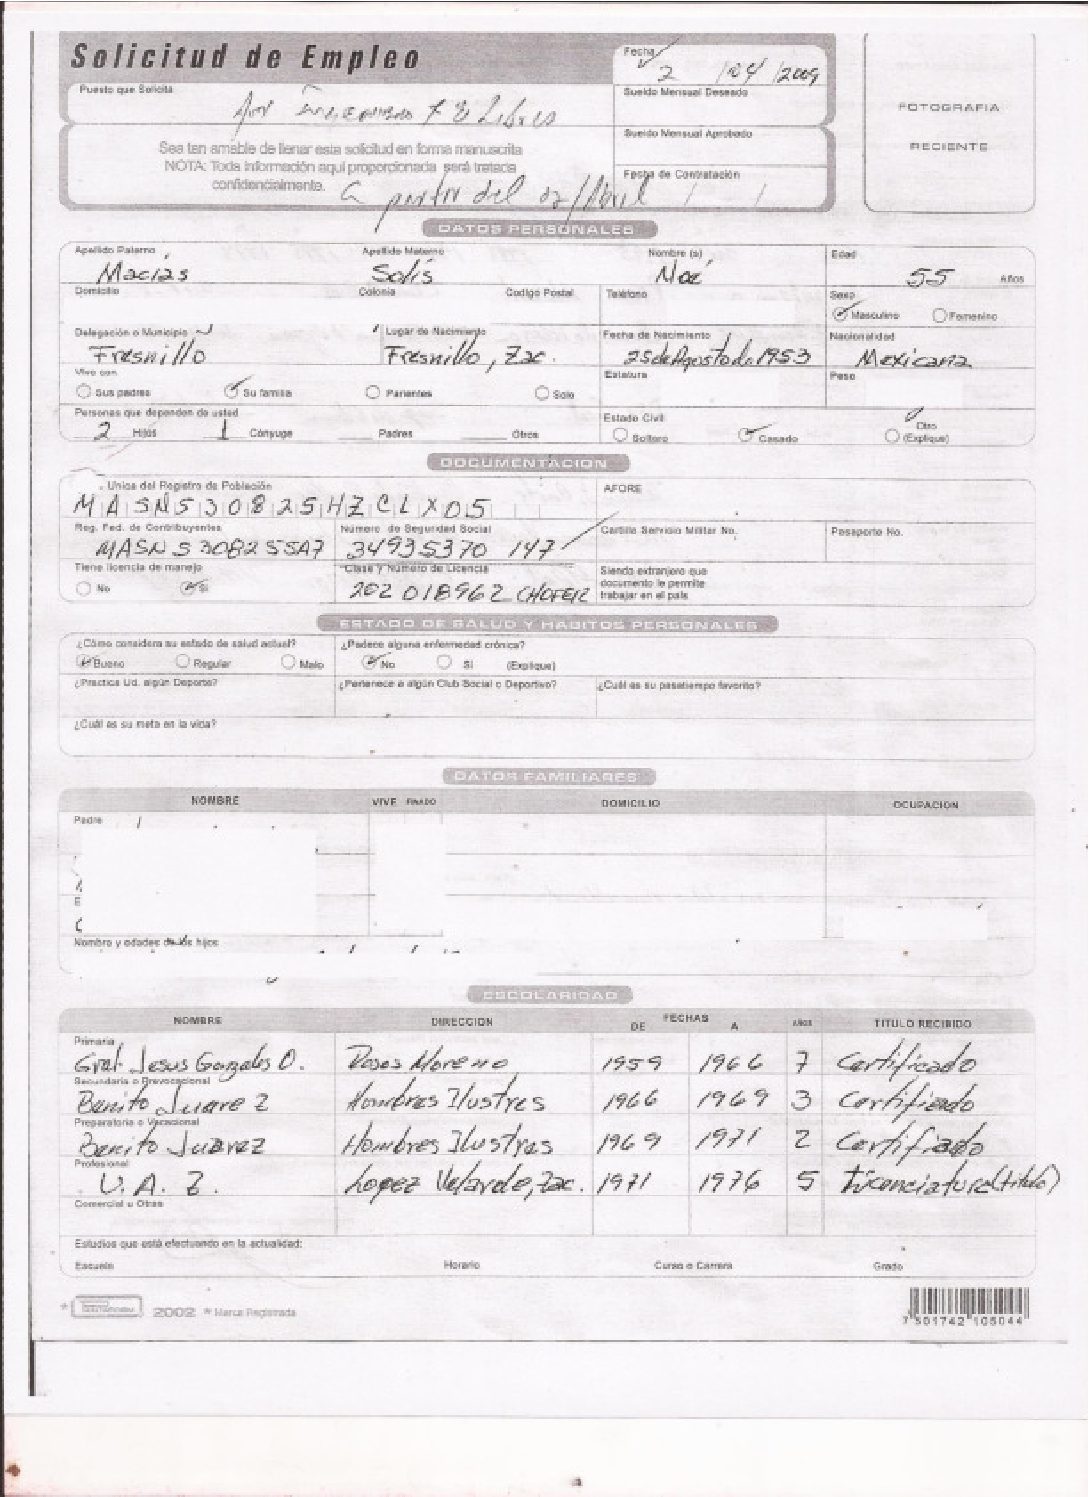 Solicitud de Empleo
Fecha
2 /04 /2009
Puesto que Solicita
Sueldo Mensual Deseado
FOTOGRAFIA
RECIENTE
Sueldo Mensual Aprobado
Sea tan amable de llenar esta solicitud en forma manuscrita
NOTA: Toda información aquí proporcionada será tratada
confidencialmente.
Fecha de Contratación
/ /
a partir del 02/Abril
DATOS PERSONALES
Apellido Paterno Apellido Materno Nombre (s) Edad
Macías Solís Noé 55 Años
Domicilio Colonia Codigo Postal Teléfono Sexo
Masculino Femenino
Delegación o Municipio Lugar de Nacimiento Fecha de Nacimiento Nacionalidad
Fresnillo Fresnillo, Zac. 25 de Agosto de 1953 Mexicana
Vive con Estatura Peso
Sus padres Su familia Parientes Solo
Personas que dependen de usted Estado Civil
2 Hijos 1 Cónyuge Padres Otros Soltero Casado Otro (Explique)
DOCUMENTACION
Unica del Registro de Población AFORE
MASN530825HZCLX05
Reg. Fed. de Contribuyentes Número de Seguridad Social Cartilla Servicio Militar No. Pasaporte No.
MASN5308255A7 34935370 147
Tiene licencia de manejo Clase y Número de Licencia Siendo extranjero que
documento le permite
trabajar en el país
No Si 202 018962 CHOFER
ESTADO DE SALUD Y HABITOS PERSONALES
¿Cómo considera su estado de salud actual? ¿Padece alguna enfermedad crónica?
Bueno Regular Malo No Si (Explique)
¿Practica Ud. algún Deporte? ¿Pertenece a algún Club Social o Deportivo? ¿Cuál es su pasatiempo favorito?
¿Cuál es su meta en la vida?
DATOS FAMILIARES
NOMBRE VIVE FINADO DOMICILIO OCUPACION
Padre
Nombre y edades de los hijos
ESCOLARIDAD
NOMBRE DIRECCION FECHAS DE A AÑOS TITULO RECIBIDO
Primaria
Gral. Jesus Gonzales O. Rosas Moreno 1959 1966 7 Certificado
Secundaria o Prevocacional
Benito Juarez Hombres Ilustres 1966 1969 3 Certificado
Preparatoria o Vocacional
Benito Juarez Hombres Ilustres 1969 1971 2 Certificado
Profesional
U. A. Z. Lopez Velarde, Zac. 1971 1976 5 Licenciatura (titulo)
Comercial u Otras
Estudios que está efectuando en la actualidad:
Escuela Horario Curso o Carrera Grado
2002 ® Marca Registrada
7 501742 105044